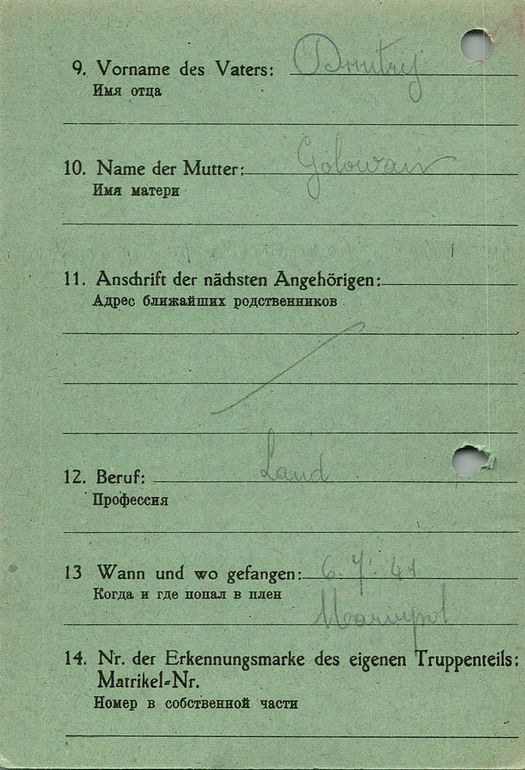 9. Vorname des Vaters: Dmitrij
Имя отца
10. Name der Mutter: Golowan
Имя матери
11. Anschrift der nächsten Angehörigen:
Адрес ближайших родственников
12. Beruf: Land
Профессия
13 Wann und wo gefangen: 6. 7. 41
Когда и где попал в плен
14. Nr. der Erkennungsmarke des eigenen Truppenteils:
Matrikel-Nr.
Номер в собственной части